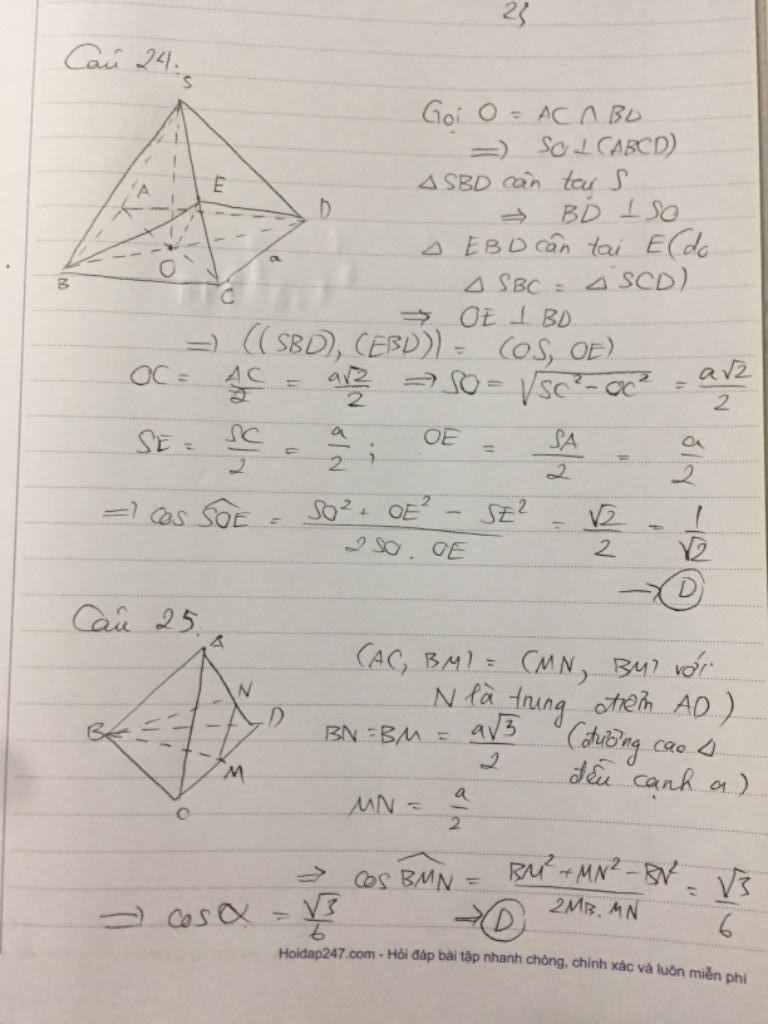 23
Câu 24:
S
A
E
D
O
a
B
C
Gọi O = AC ∩ BD
=> SO ⊥ (ABCD)
△ SBD cân tại S
=> BD ⊥ SO
△ EBD cân tại E (do
△ SBC = △ SCD)
=> OE ⊥ BD
=> ((SBD), (EBD)) = (OS, OE)
OC = AC/2 = a√2/2 => SO = √(SC² - OC²) = a√2/2
SE = SC/2 = a/2 ; OE = SA/2 = a/2
=> cos SOE = (SO² + OE² - SE²)/(2 SO . OE) = √2/2 = 1/√2
→ D
Câu 25:
A
N
B
D
M
C
(AC, BM) = (MN, BM) với
N là trung điểm AD)
BN = BM = a√3/2 (đường cao △
đều cạnh a)
MN = a/2
=> cos BMN = (BM² + MN² - BN²)/(2MB. MN) = √3/6
=> cos α = √3/6 => D
Hoidap247.com - Hỏi đáp bài tập nhanh chóng, chính xác và luôn miễn phí